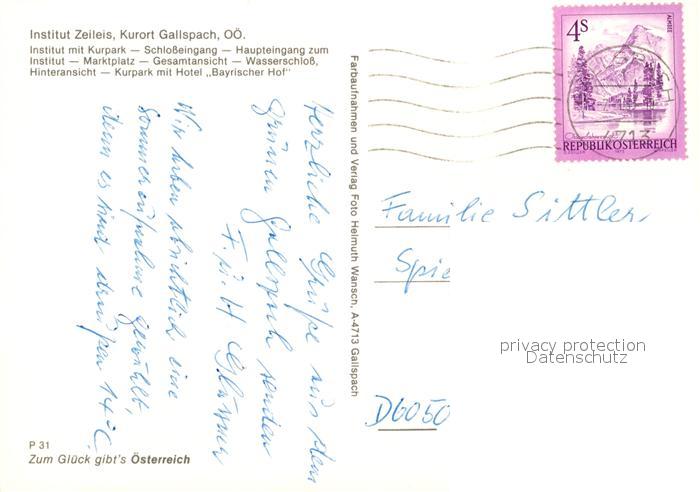 Institut Zeileis, Kurort Gallspach, OÖ.
Institut mit Kurpark — Schloßeingang — Haupteingang zum
Institut — Marktplatz — Gesamtansicht — Wasserschloß,
Hinteransicht — Kurpark mit Hotel „Bayrischer Hof"
Herzliche Grüße aus dem
grünen Gallspach senden
F. u. H
Wir haben eine
Sommer gewählt,
denn es sind draußen 14°C
P 31
Zum Glück gibt's Österreich
Farbaufnahmen und Verlag Foto Helmuth Wansch, A-4713 Gallspach
4s
ALMSEE
REPUBLIK ÖSTERREICH
4713
Familie Sittler
Spie
D6050
privacy protection
Datenschutz